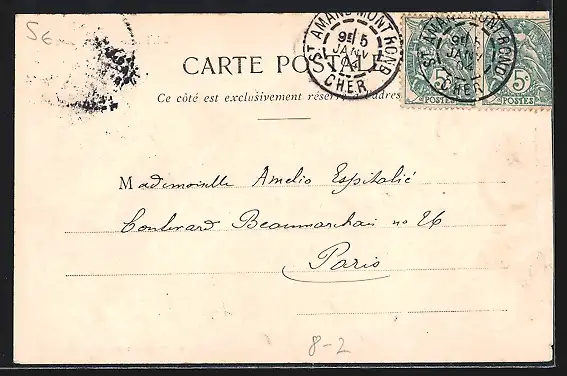 56
CARTE POSTALE
Ce côté est exclusivement réservé à l'adresse
Mademoiselle Amelie Espitalié
Boulevard Beaumarchais no 26
Paris
8-2
ST AMAND-MONT-ROND
9E 5
JANV
04
CHER
ST AMAND-MONT-ROND
9E 5
JANV
04
CHER
5c
POSTES
5c
POSTES